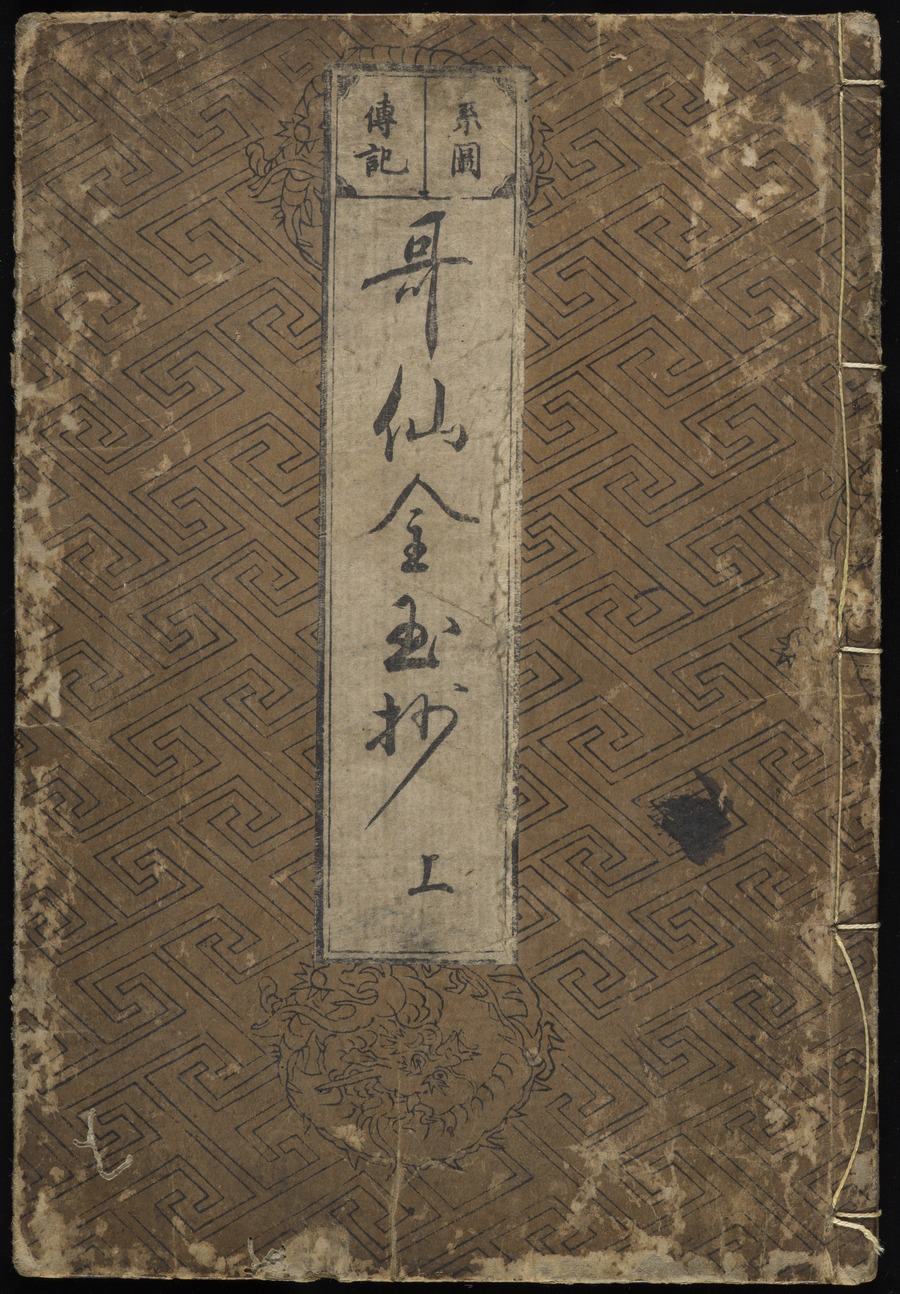 系圖
傳記
哥仙金玉抄 上